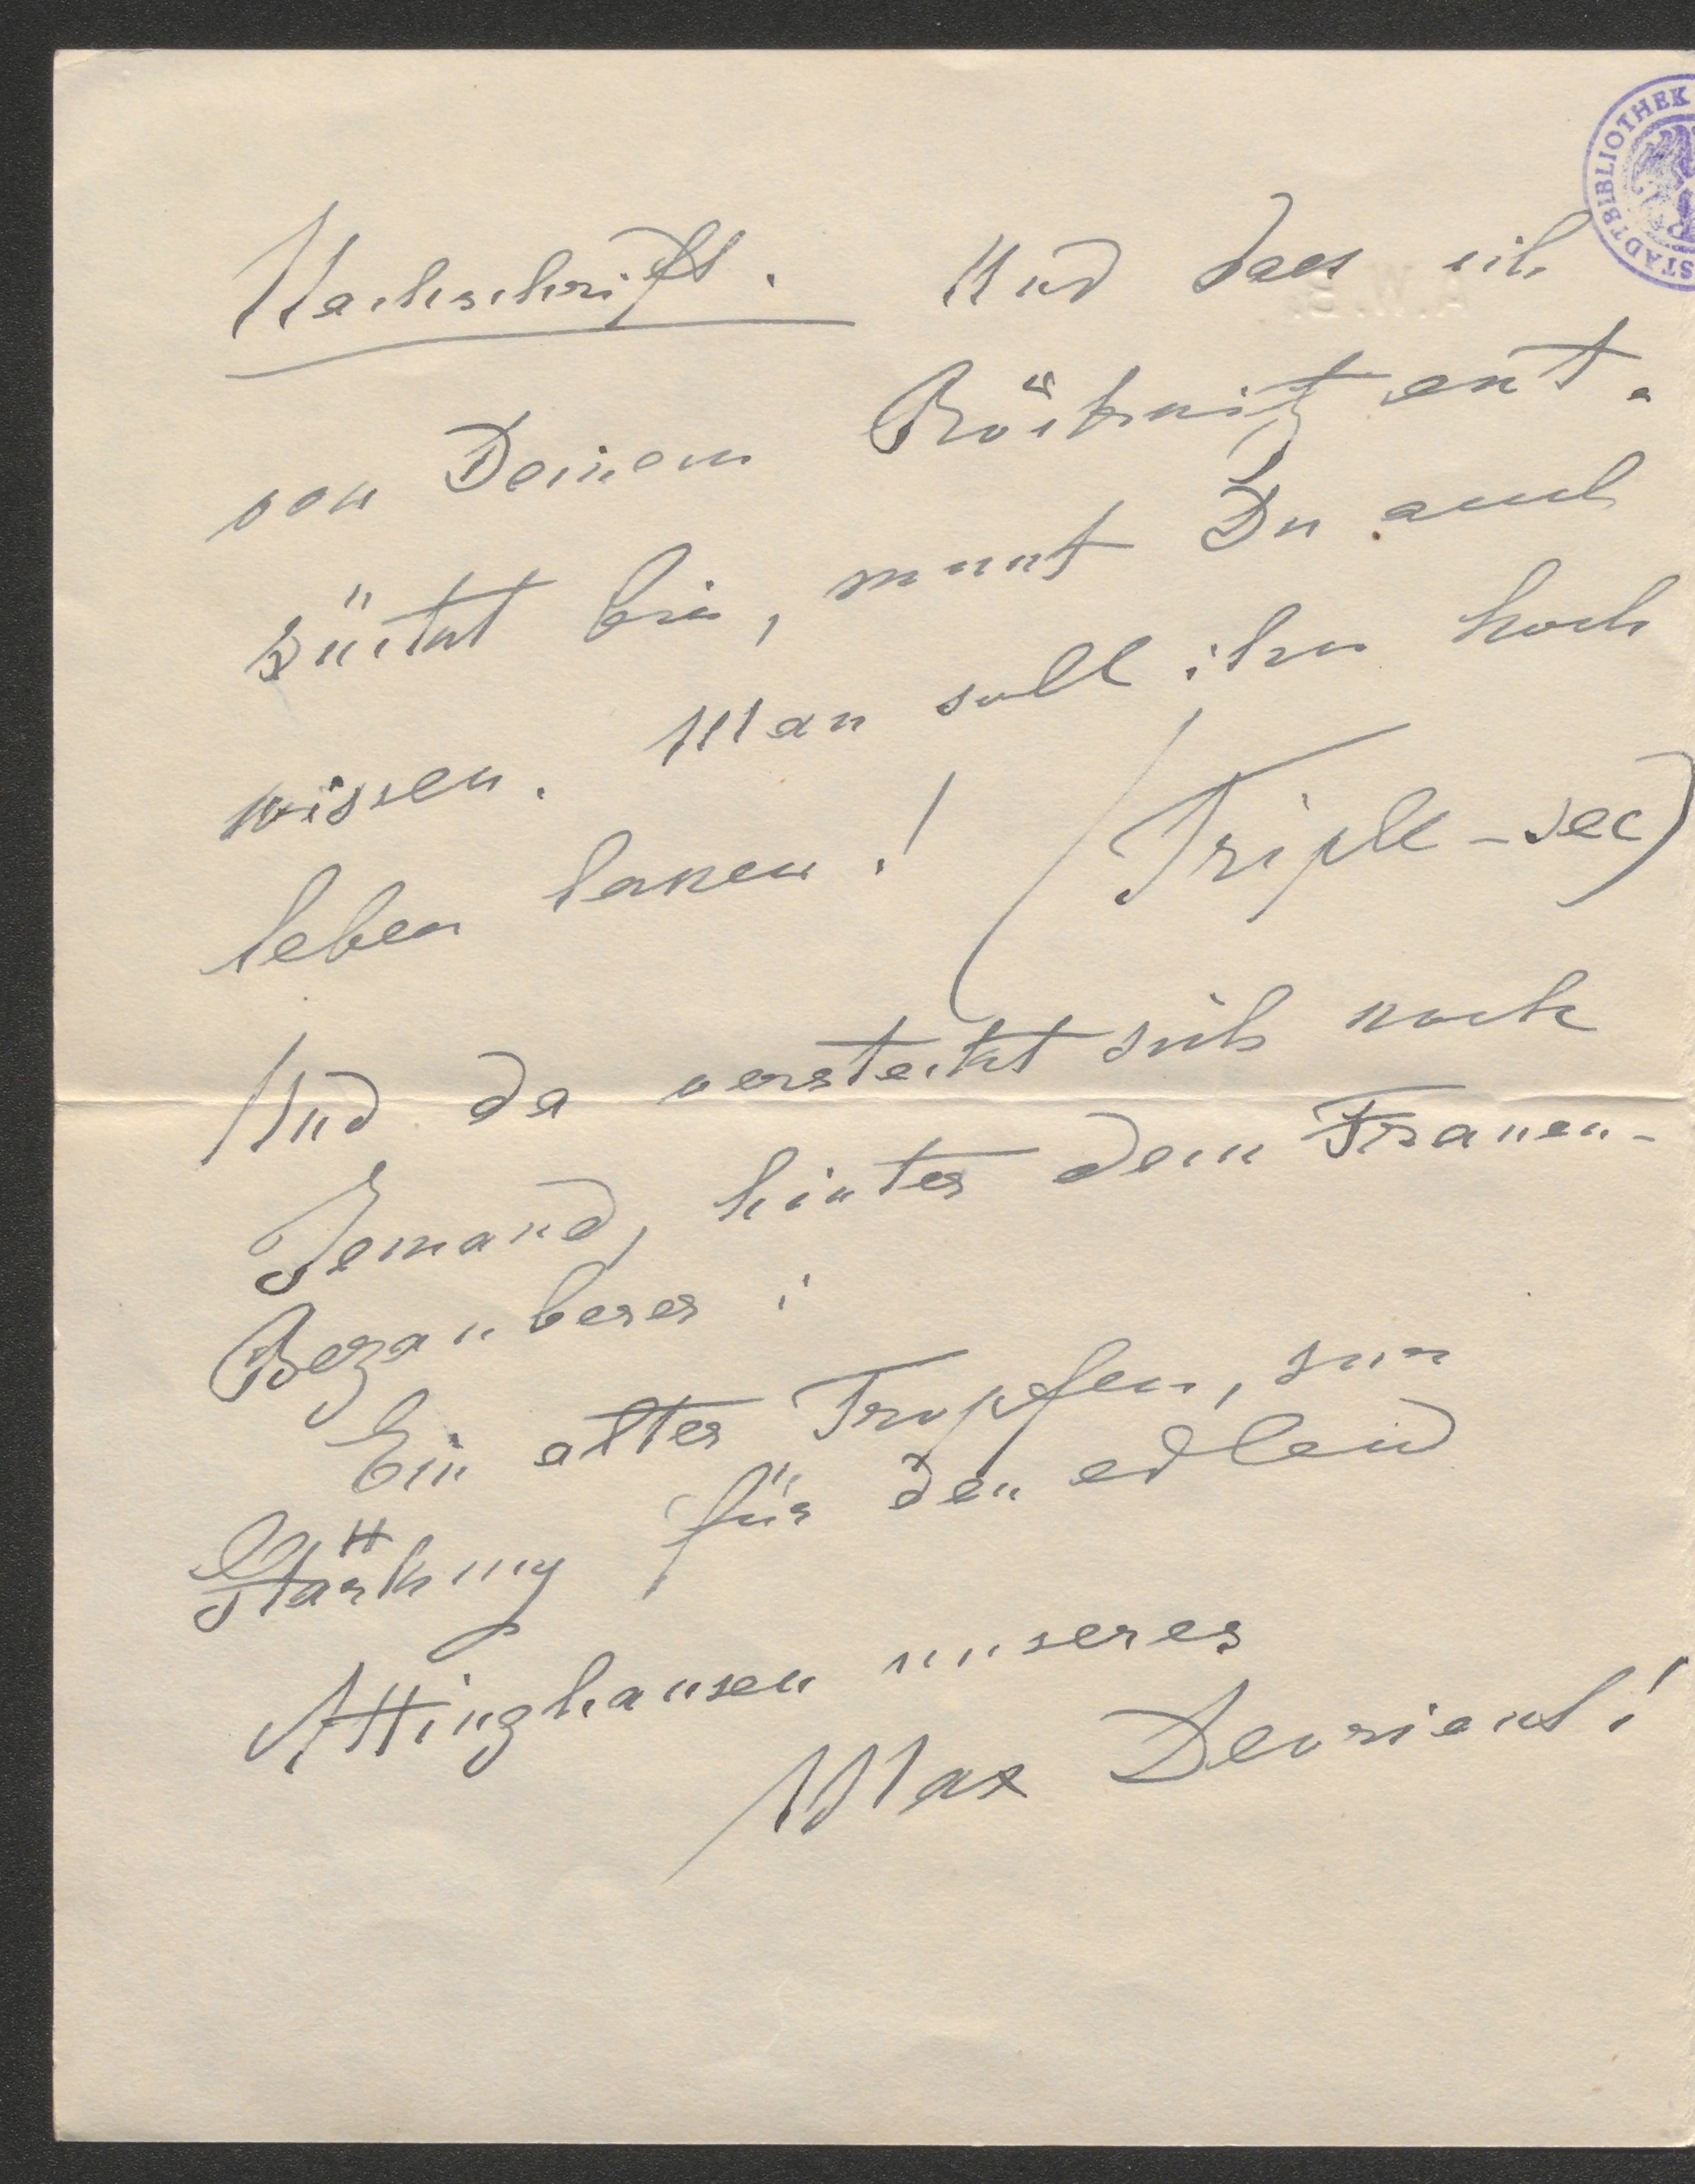 Nachschrift. Und dass ich
von Deinem Röcknitz ent-
zückt bin, musst Du auch
wissen. Man soll ihn hoch
leben lassen! (Triple-sec)
Und da versteckt sich noch
Jemand, hinter dem Frauen-
Bezauberer:
Ein alter Tropfen, zur
Stärkung für den edlen
Attinghausen unseres
Max Devrient!
STADTBIBLIOTHEK
A.W.B.